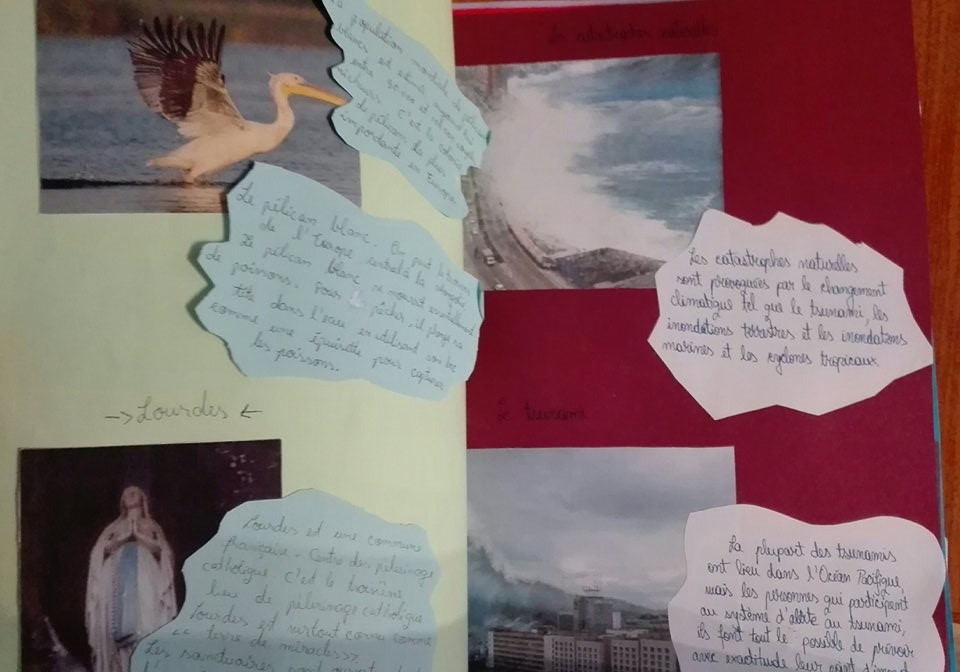 population mondiale de
blancs est estimée
entre
nicheurs. C'est la colonie
de pélican la plus
importante en Europe.
Le pélican blanc. On peut le trouver
de l'Europe
Le pélican blanc se nourrit essentiellement
de poissons. Pour pêcher, il plonge sa
tête dans l'eau en utilisant son bec
comme une épuisette pour capturer
les poissons.
→ Lourdes ←
Lourdes est une commune
française. Centre des pèlerinage
catholique c'est le
lieu de pèlerinage catholique
Lourdes est surtout connu comme
<< terre de miracles>>
Les sanctuaires sont
Les catastrophes naturelles
Les catastrophes naturelles
sont provoquées par le changement
climatique tel que le tsunami, les
inondations terrestres et les inondations
marines et les cyclones tropicaux.
Le tsunami
La plupart des tsunamis
ont lieu dans l'Océan Pacifique,
mais les personnes qui participent
au système d'alerte au tsunami,
ils font tout le possible de prévoir
avec exactitude leur point